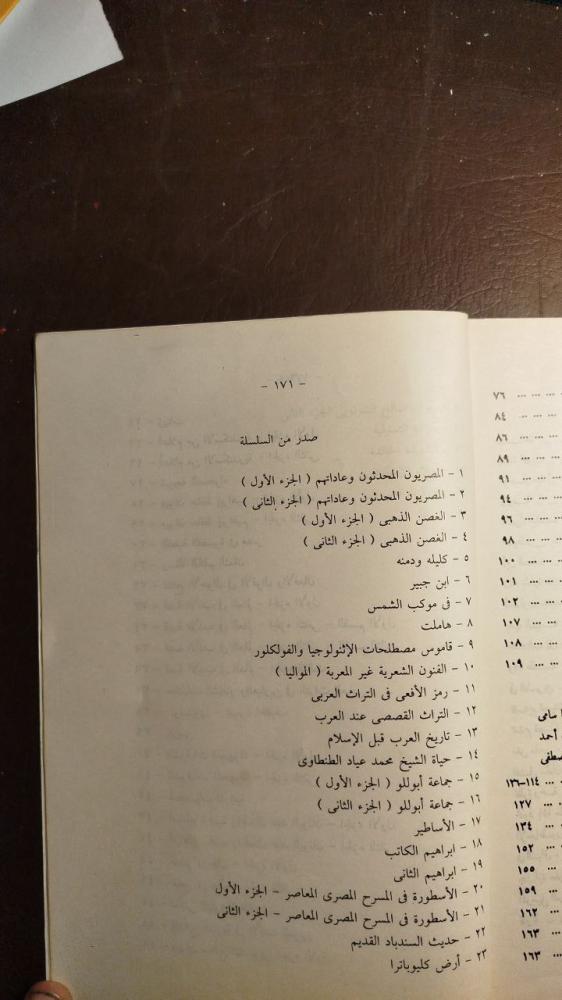 ٧٦ ... ... ...
٨٤ ... ... ...
٨٦ ... ... ...
٨٩ ... ... ...
٩١ ... ... ...
٩٤ ... ... ...
٩٦ ... ... ...
٩٨ ... ... ...
١٠٠ ... ...
١٠١ ... ...
١٠٢ ... ...
١٠٧ ... ...
١٠٨ ... ...
١٠٩ ... ...
سامى
أحمد
١١٤–١٣٦ ...
١٢٧ ... ...
١٣٤ ... ...
١٥٢ ... ...
١٥٥ ... ...
١٥٩ ... ...
١٦٢ ... ...
١٦٣ ... ...
١٦٣ ... ...
– ١٧١ –
صدر من السلسلة
١ – المصريون المحدثون وعاداتهم ( الجزء الأول )
٢ – المصريون المحدثون وعاداتهم ( الجزء الثانى )
٣ – الغصن الذهبى ( الجزء الأول )
٤ – الغصن الذهبى ( الجزء الثانى )
٥ – كليله ودمنه
٦ – ابن جبير
٧ – فى موكب الشمس
٨ – هاملت
٩ – قاموس مصطلحات الإثنولوجيا والفولكلور
١٠ – الفنون الشعرية غير المعربة ( المواليا )
١١ – رمز الأفعى فى التراث العربى
١٢ – التراث القصصى عند العرب
١٣ – تاريخ العرب قبل الإسلام
١٤ – حياة الشيخ محمد عياد الطنطاوى
١٥ – جماعة أبوللو ( الجزء الأول )
١٦ – جماعة أبوللو ( الجزء الثانى )
١٧ – الأساطير
١٨ – ابراهيم الكاتب
١٩ – ابراهيم الثانى
٢٠ – الأسطورة فى المسرح المصرى المعاصر – الجزء الأول
٢١ – الأسطورة فى المسرح المصرى المعاصر – الجزء الثانى
٢٢ – حديث السندباد القديم
٢٣ – أرض كليوباترا